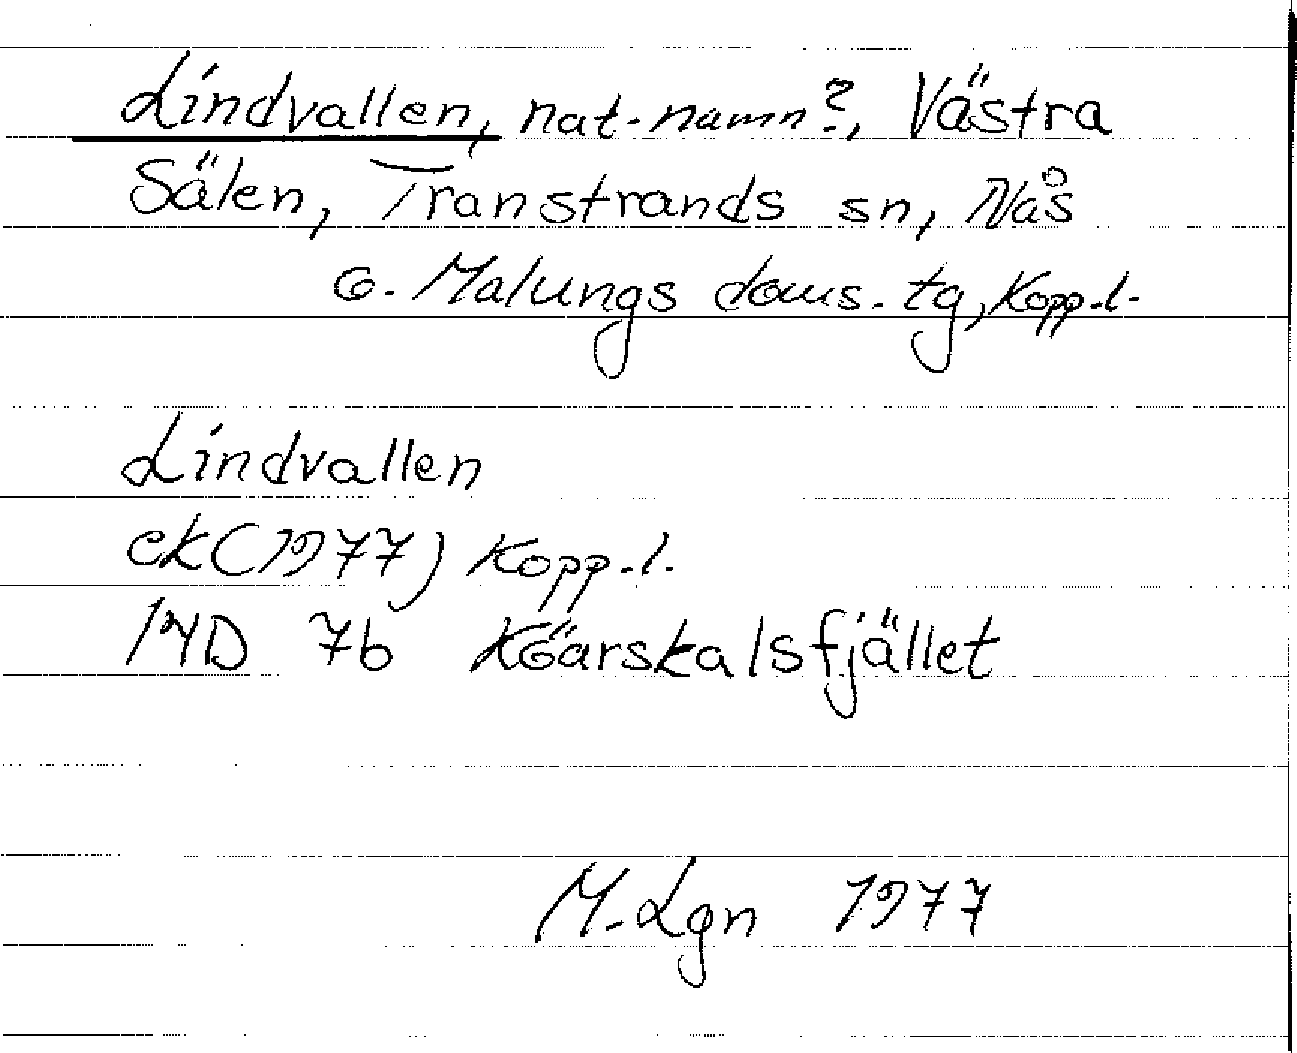 Lindvallen, nat-namn?, Västra
Sälen, Transtrands sn, Nås
o. Malungs doms. tg, Kopp.l.
Lindvallen
ek (1977) Kopp.l.
14D 7b Köarskalsfjället
M. Lgn 1977